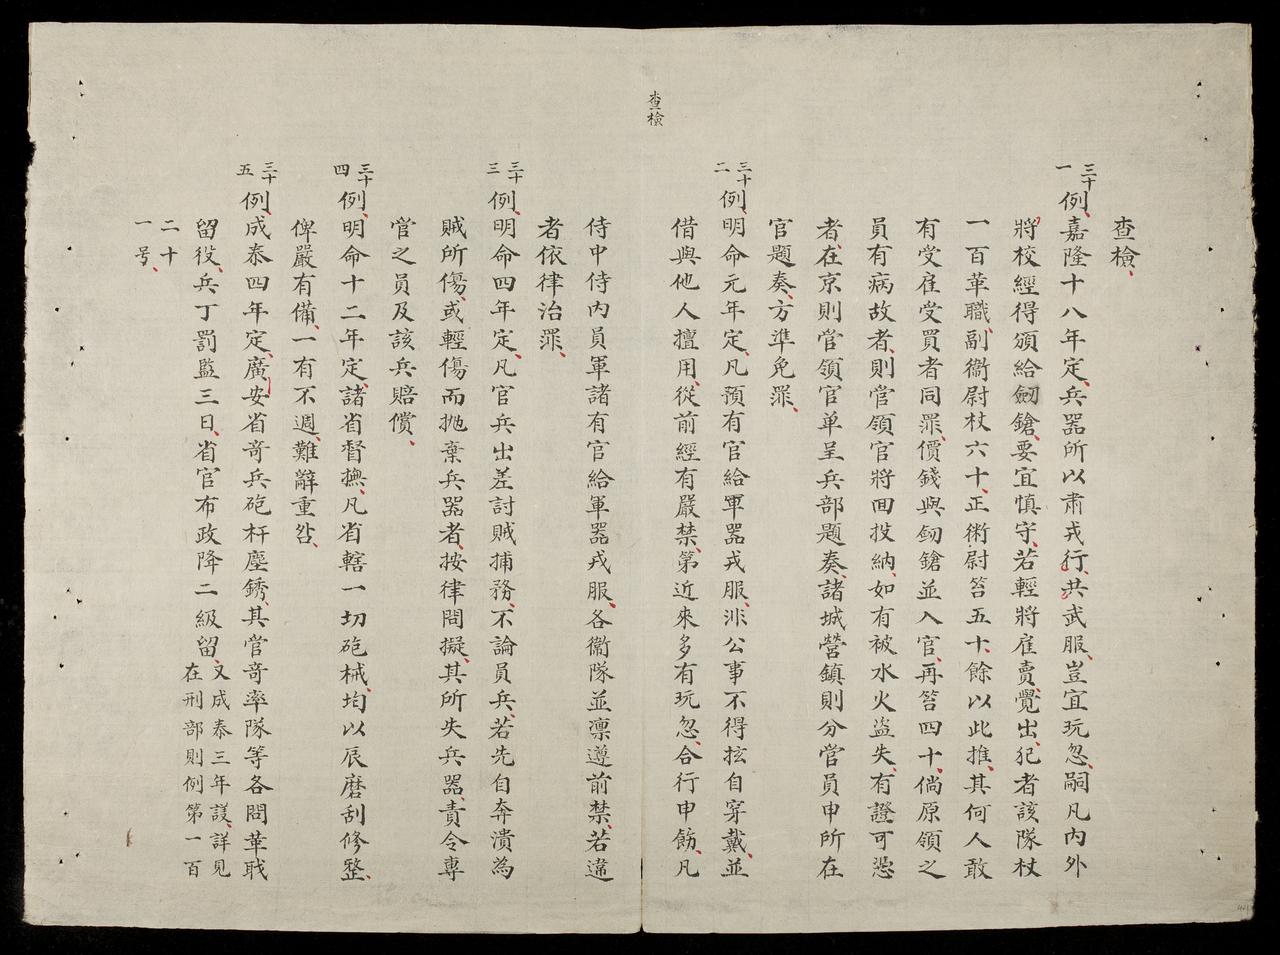 查檢
查檢
三十一
例嘉隆十八年定兵器所以肅戎行共武服豈宜玩忽嗣凡内外
將校經得頒給劒鎗要宜慎守若輕將雇賣覺出犯者該隊杖
一百革職副衞尉杖六十正術尉笞五十餘以此推其何人敢
有受雇受買者同罪價錢與劒鎗並入官再笞四十倘原領之
員有病故者則管領官將回投納如有被水火盜失有證可憑
者在京則管領官单呈兵部題奏諸城營鎮則分管員申所在
官題奏方準免罪
三十二
例明命元年定凡預有官給軍器戎服非公事不得抆自穿戴並
借與他人擅用從前經有嚴禁第近來多有玩忽合行申飭凡
侍中侍内員軍諸有官給軍器戎服各衞隊並凛遵前禁若違
者依律治罪
三十三
例明命四年定凡官兵出差討賊捕務不論員兵若先自奔潰為
賊所傷或輕傷而拋棄兵器者按律問擬其所失兵器責令專
管之員及該兵賠償
三十四
例明命十二年定諸省督撫凡省轄一切砲械均以辰磨刮修整
俾嚴有備一有不週難辭重咎
三十五
例成泰四年定廣安省竒兵砲杆塵銹其管竒率隊等各問革職
留役兵丁罰監三日省官布政降二級留
又成泰三年議詳見
在刑部則例第一百
二十一号